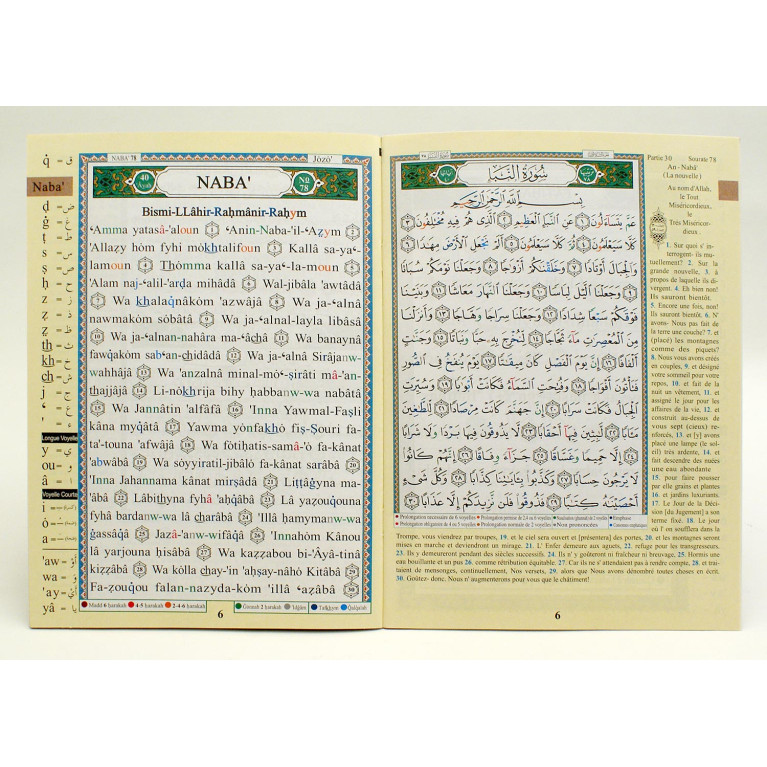 NABA' 78
Jòzô'
40
Ayah
NABA'
NΩ
78
Bismi-LLâhir-Raḥmânir-Raḥym
ʿAmma yatasâ-'aloun 1 ʿAnin-Naba-'il-ʿAẓym 2
'Allaẓy hòm fyhi mòkhtalifoun 3 Kallâ sa-yaʿ-
lamoun 4 Thòmma kallâ sa-yaʿ-la-moun 5
'Alam naj-ʿalil-'arḍa mihâdâ 6 Wal-jibâla 'awtâdâ
7 Wa khalaqnâkòm 'azwâjâ 8 Wa ja-ʿalnâ
nawmakòm sòbâtâ 9 Wa ja-ʿalnal-layla libâsâ
10 Wa ja-ʿalnan-nahâra ma-ʿâchâ 11 Wa banaynâ
fawqakòm sabʿan-chidâdâ 12 Wa ja-ʿalnâ Sirâjanw-
wahhâjâ 13 Wa 'anzalnâ minal-mòʿ-ṣirâti mâ-'an-
thajjâjâ 14 Li-nòkhrija bihy ḥabbanw-wa nabâtâ
15 Wa Jannâtin 'alfâfâ 16 'Inna Yawmal-Faṣli
kâna myqâtâ 17 Yawma yònfakhò fiṣ-Ṣouri fa-
ta'-touna 'afwâjâ 18 Wa fòtiḥatis-samâ-'ò fa-kânat
'abwâbâ 19 Wa sòyyiratil-jibâlò fa-kânat sarâbâ 20
'Inna Jahannama kânat mirṣâdâ 21 Liṭṭâġyna ma-
'âbâ 22 Lâbithyna fyhâ 'aḥqâbâ 23 Lâ yaẓouqouna
fyhâ bardanw-wa lâ charâbâ 24 'Illâ ḥamymanw-wa
ġassâqâ 25 Jazâ-'anw-wifâqâ 26 'Innahòm Kânou
lâ yarjouna ḥisâbâ 27 Wa kaẓẓabou bi-'Âyâ-tinâ
kiẓẓâbâ 28 Wa kòlla chay-'in 'aḥṣay-nâhò Kitâbâ 29
Fa-ẓouqou falan-nazyda-kòm 'illâ 'aẓâbâ 30
Madd 6 ḥarakah 4-5 ḥarakah 2-4-6 ḥarakah Gonnah 2 ḥarakah 'Idġâm Tafkhym Qalqalah
6
Naba'
Longue Voyelle
Voyelle Courte
سُورَةُ النَّبَإِ
بِسْمِ اللَّهِ الرَّحْمَٰنِ الرَّحِيمِ
عَمَّ يَتَسَاءَلُونَ ١ عَنِ النَّبَإِ الْعَظِيمِ ٢ الَّذِي هُمْ فِيهِ مُخْتَلِفُونَ ٣
كَلَّا سَيَعْلَمُونَ ٤ ثُمَّ كَلَّا سَيَعْلَمُونَ ٥ أَلَمْ نَجْعَلِ الْأَرْضَ مِهَٰدًا ٦
وَالْجِبَالَ أَوْتَادًا ٧ وَخَلَقْنَٰكُمْ أَزْوَٰجًا ٨ وَجَعَلْنَا نَوْمَكُمْ سُبَاتًا
٩ وَجَعَلْنَا الَّيْلَ لِبَاسًا ١٠ وَجَعَلْنَا النَّهَارَ مَعَاشًا ١١ وَبَنَيْنَا
فَوْقَكُمْ سَبْعًا شِدَادًا ١٢ وَجَعَلْنَا سِرَاجًا وَهَّاجًا ١٣ وَأَنزَلْنَا
مِنَ الْمُعْصِرَٰتِ مَاءً ثَجَّاجًا ١٤ لِّنُخْرِجَ بِهِ حَبًّا وَنَبَاتًا ١٥ وَجَنَّٰتٍ
أَلْفَافًا ١٦ إِنَّ يَوْمَ الْفَصْلِ كَانَ مِيقَٰتًا ١٧ يَوْمَ يُنفَخُ فِي الصُّورِ
فَتَأْتُونَ أَفْوَاجًا ١٨ وَفُتِحَتِ السَّمَاءُ فَكَانَتْ أَبْوَٰبًا ١٩ وَسُيِّرَتِ
الْجِبَالُ فَكَانَتْ سَرَابًا ٢٠ إِنَّ جَهَنَّمَ كَانَتْ مِرْصَادًا ٢١ لِّلطَّٰغِينَ
مَـَٔابًا ٢٢ لَّٰبِثِينَ فِيهَا أَحْقَابًا ٢٣ لَّا يَذُوقُونَ فِيهَا بَرْدًا وَلَا شَرَابًا
٢٤ إِلَّا حَمِيمًا وَغَسَّاقًا ٢٥ جَزَاءً وِفَاقًا ٢٦ إِنَّهُمْ كَانُوا
لَا يَرْجُونَ حِسَابًا ٢٧ وَكَذَّبُوا بِـَٔايَٰتِنَا كِذَّابًا ٢٨ وَكُلَّ شَيْءٍ
أَحْصَيْنَٰهُ كِتَٰبًا ٢٩ فَذُوقُوا فَلَن نَّزِيدَكُمْ إِلَّا عَذَابًا ٣٠
Partie 30 Sourate 78
An - Nabâ'
(La nouvelle)
Au nom d'Allah,
le Tout
Miséricordieux,
le
Très Miséricor-
dieux .
1. Sur quoi s' in-
terrogent- ils mu-
tuellement? 2. Sur la
grande nouvelle, 3. à
propos de laquelle ils di-
vergent. 4. Eh bien non!
Ils sauront bientôt.
5. Encore une fois, non!
Ils sauront bientôt. 6. N'
avons- Nous pas fait de
la terre une couche? 7. et
(placé) les montagnes
comme des piquets?
8. Nous vous avons créés
en couples, 9. et désigné
votre sommeil pour votre
repos, 10. et fait de la
nuit un vêtement, 11. et
assigné le jour pour les
affaires de la vie, 12. et
construit au-dessus de
vous sept (cieux) ren-
forcés, 13. et [y] avons
placé une lampe (le sol-
eil) très ardente, 14. et
fait descendre des nuées
une eau abondante
15. pour faire pousser
par elle grains et plantes
16. et jardins luxuriants.
17. Le Jour de la Déci-
sion [du Jugement] a son
terme fixé. 18. Le jour
où l' on soufflera dans la
Trompe, vous viendrez par troupes, 19. et le ciel sera ouvert et [présentera] des portes, 20. et les montagnes seront
mises en marche et deviendront un mirage. 21. L' Enfer demeure aux aguets, 22. refuge pour les transgresseurs.
23. Ils y demeureront pendant des siècles successifs. 24. Ils n' y goûteront ni fraîcheur ni breuvage, 25. Hormis une
eau bouillante et un pus 26. comme rétribution équitable. 27. Car ils ne s' attendaient pas à rendre compte, 28. et trai-
taient de mensonges, continuellement, Nos versets, 29. alors que Nous avons dénombré toutes choses en écrit.
30. Goûtez- donc. Nous n' augmenterons pour vous que le châtiment!
6